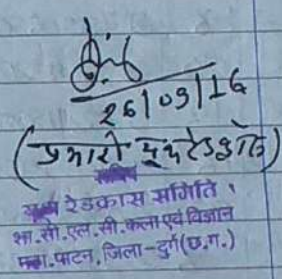 26/09/16
(प्रभारी
रेडक्रास समिति
शा.सी.एल.सी.कला एवं विज्ञान
महा.पाटन, जिला-दुर्ग (छ.ग.)